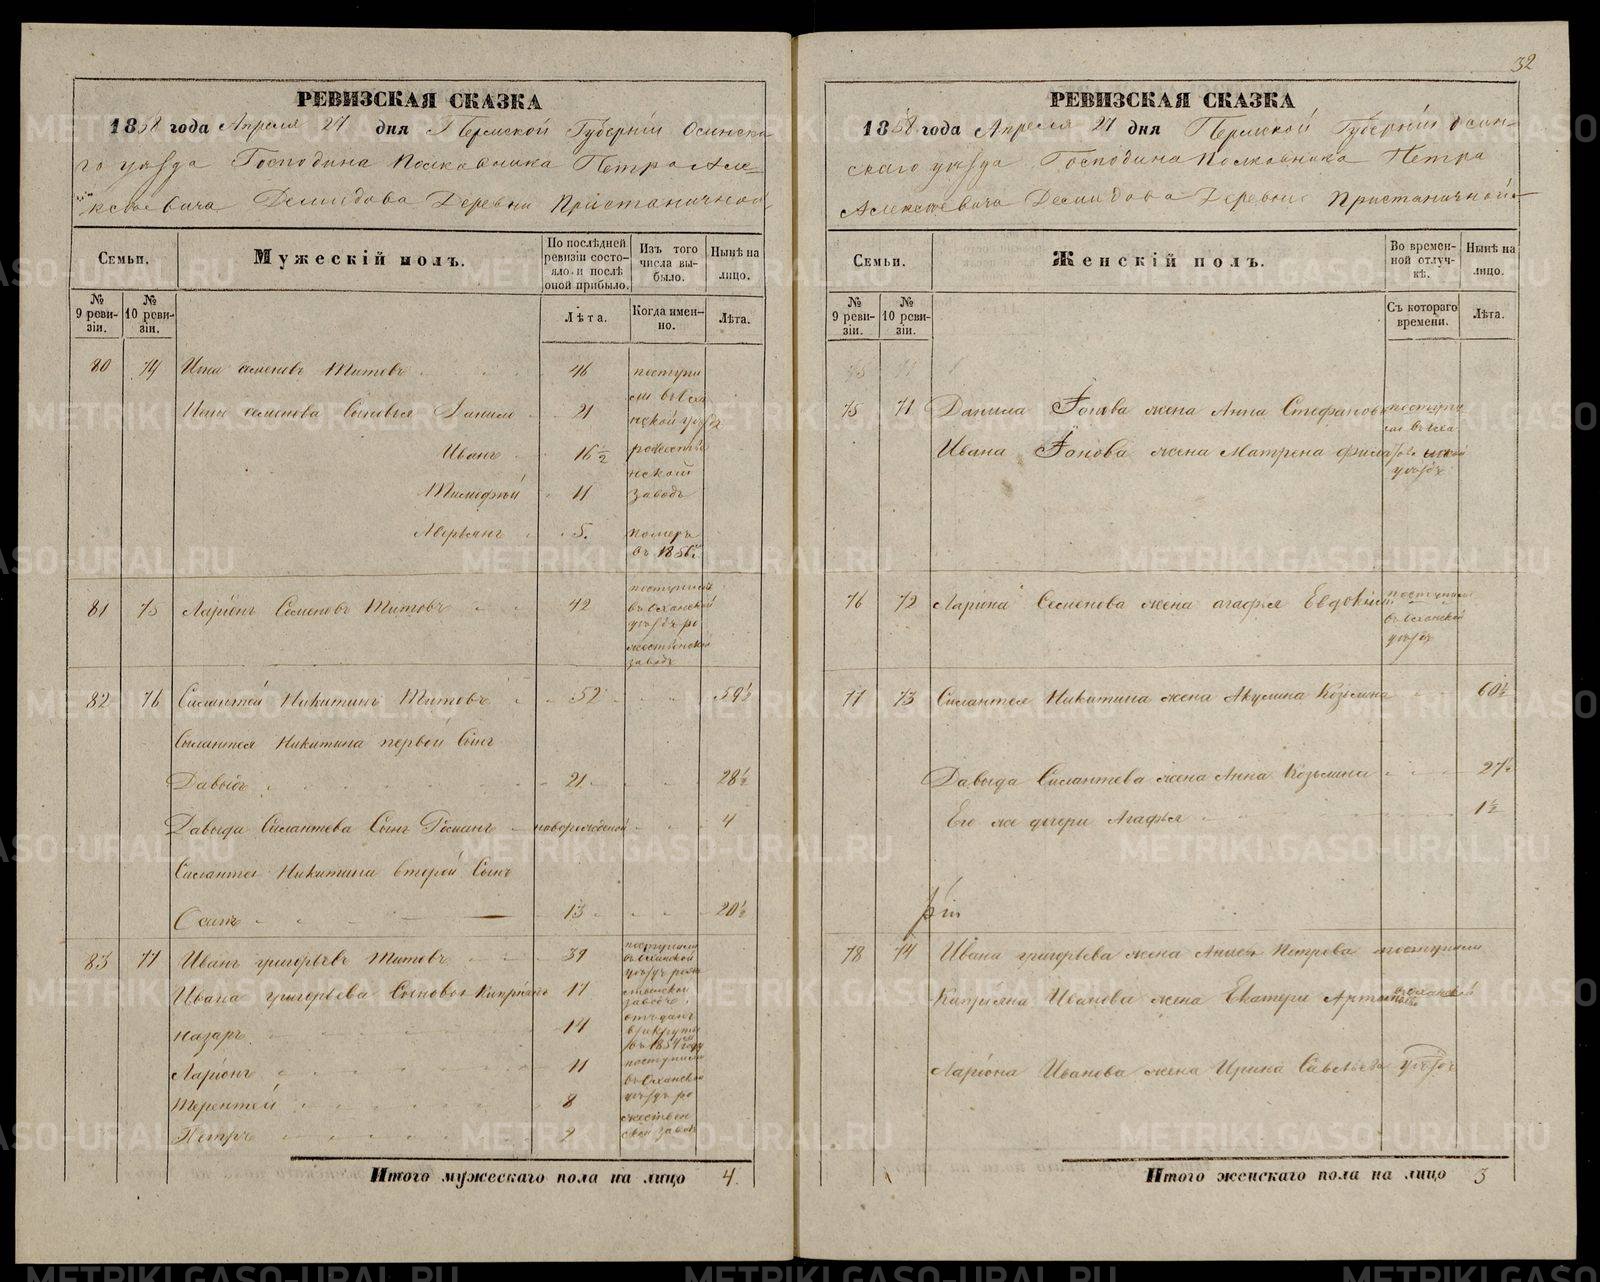 32
РЕВИЗСКАЯ СКАЗКА
1858 года Апреля 27 дня Пермской Губерніи Осинска-
го уѣзда Господина Полковника Петра Але-
ксѣевича Демидова Деревни Пристаничной
Семьи.
Мужескій полъ.
По послѣдней ревизіи состояло и послѣ оной прибыло.
Изъ того числа выбыло.
Нынѣ на лицо.
№ 9 ревизіи.
№ 10 ревизіи.
Лѣта.
Когда именно.
Лѣта.
80 74 Семеновъ Титовъ 46 поступи
ли въ Оха
Семенова Сыновья Данило 21 нской уѣздъ
Иванъ 16½ рожестве
нской
Тимофѣй 11 заводъ
Аверьянъ 5. померъ
въ 1856
81 75 Ларіонъ Семеновъ Титовъ 42 поступилъ
въ Оханской
уѣздъ ро
жественской
заводъ
82 76 Силантей Никитинъ Титовъ 52 59½
Силантея Никитина первой Сынъ
Давыдъ 21 28½
Давыда Силантева Сынъ Романъ новорожденой 4
Силантея Никитина второй Сынъ
Осипъ 13 20½
83 77 Иванъ григорьевъ Титовъ 39 поступили
въ Оханской
уѣздъ роже
Ивана григорьева Сыновья Кипріянъ 17 ственской
заводъ
назаръ 14 отъданъ
в рекруты
въ 1854 году
Ларіонъ 11 поступили
въ Оханской
Терентей 8 уѣздъ ро
жествен
Петръ 2 ской заводъ
Итого мужескаго пола на лицо 4.
РЕВИЗСКАЯ СКАЗКА
1858 года Апреля 27 дня Пермской Губерніи Осин-
скаго уѣзда Господина Полковника Петра
Алексѣевича Демидова Деревни Пристаничной
Семьи.
Женскій полъ.
Во временной отлучкѣ.
Нынѣ на лицо.
№ 9 ревизіи.
№ 10 ревизіи.
Съ котораго времени.
Лѣта.
75 71 Данила Іонова жена Анна Стефанова поступи
ли въ Оха
Ивана Іонова жена Матрена нской
уѣздъ
76 72 Ларіона Семенова жена агафья поступила
въ Оханской
уѣздъ
77 73 Силантея Никитина жена Акулина Козьмина 60½
Давыда Силантева жена Анна Козьмина 27½
Его же дочери Агафья 1½
78 74 Ивана григорьева жена Анисья Петрова поступили
Кипріяна Иванова жена Екатери въ Оханской
Ларіона Иванова жена Ирина Савельева уѣздъ
Итого женскаго пола на лицо 3
METRIKI.GASO-URAL.RU